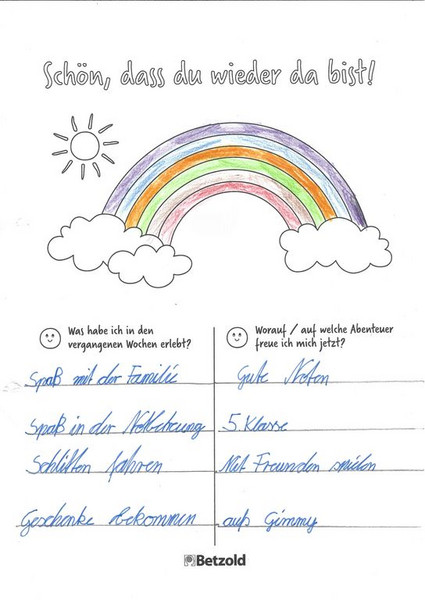 Schön, dass du wieder da bist!
Was habe ich in den
vergangenen Wochen erlebt?
Spaß mit der Familie
Spaß in der Notbetreuung
Schlitten fahren
Geschenke bekommen
Worauf / auf welche Abenteuer
freue ich mich jetzt?
Gute Noten
5. Klasse
Mit Freunden spielen
aufs Gimmy
Betzold